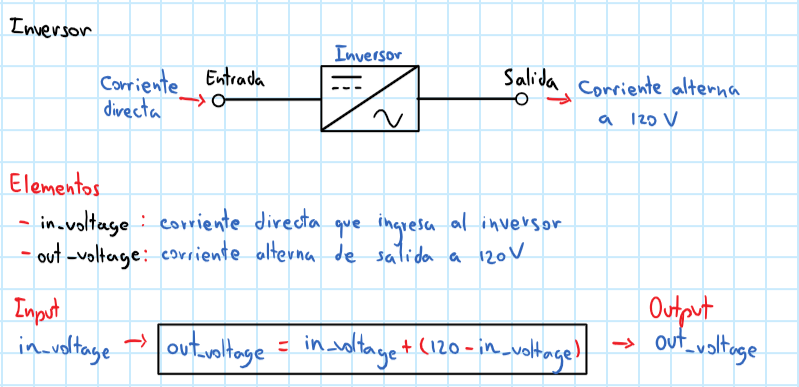 Inversor
Inversor
Corriente directa
Entrada
Salida
Corriente alterna
a 120 V
Elementos
- in_voltage : corriente directa que ingresa al inversor
- out_voltage: corriente alterna de salida a 120V
Input
Output
in_voltage → out_voltage = in_voltage + (120 - in_voltage) → out_voltage